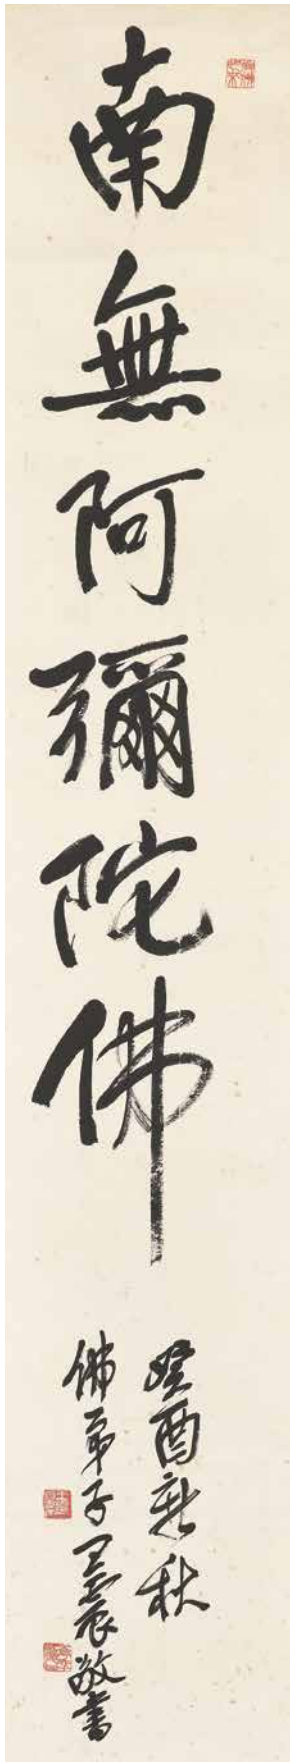 南無阿彌陀佛
癸酉新秋
佛弟子王震敬書